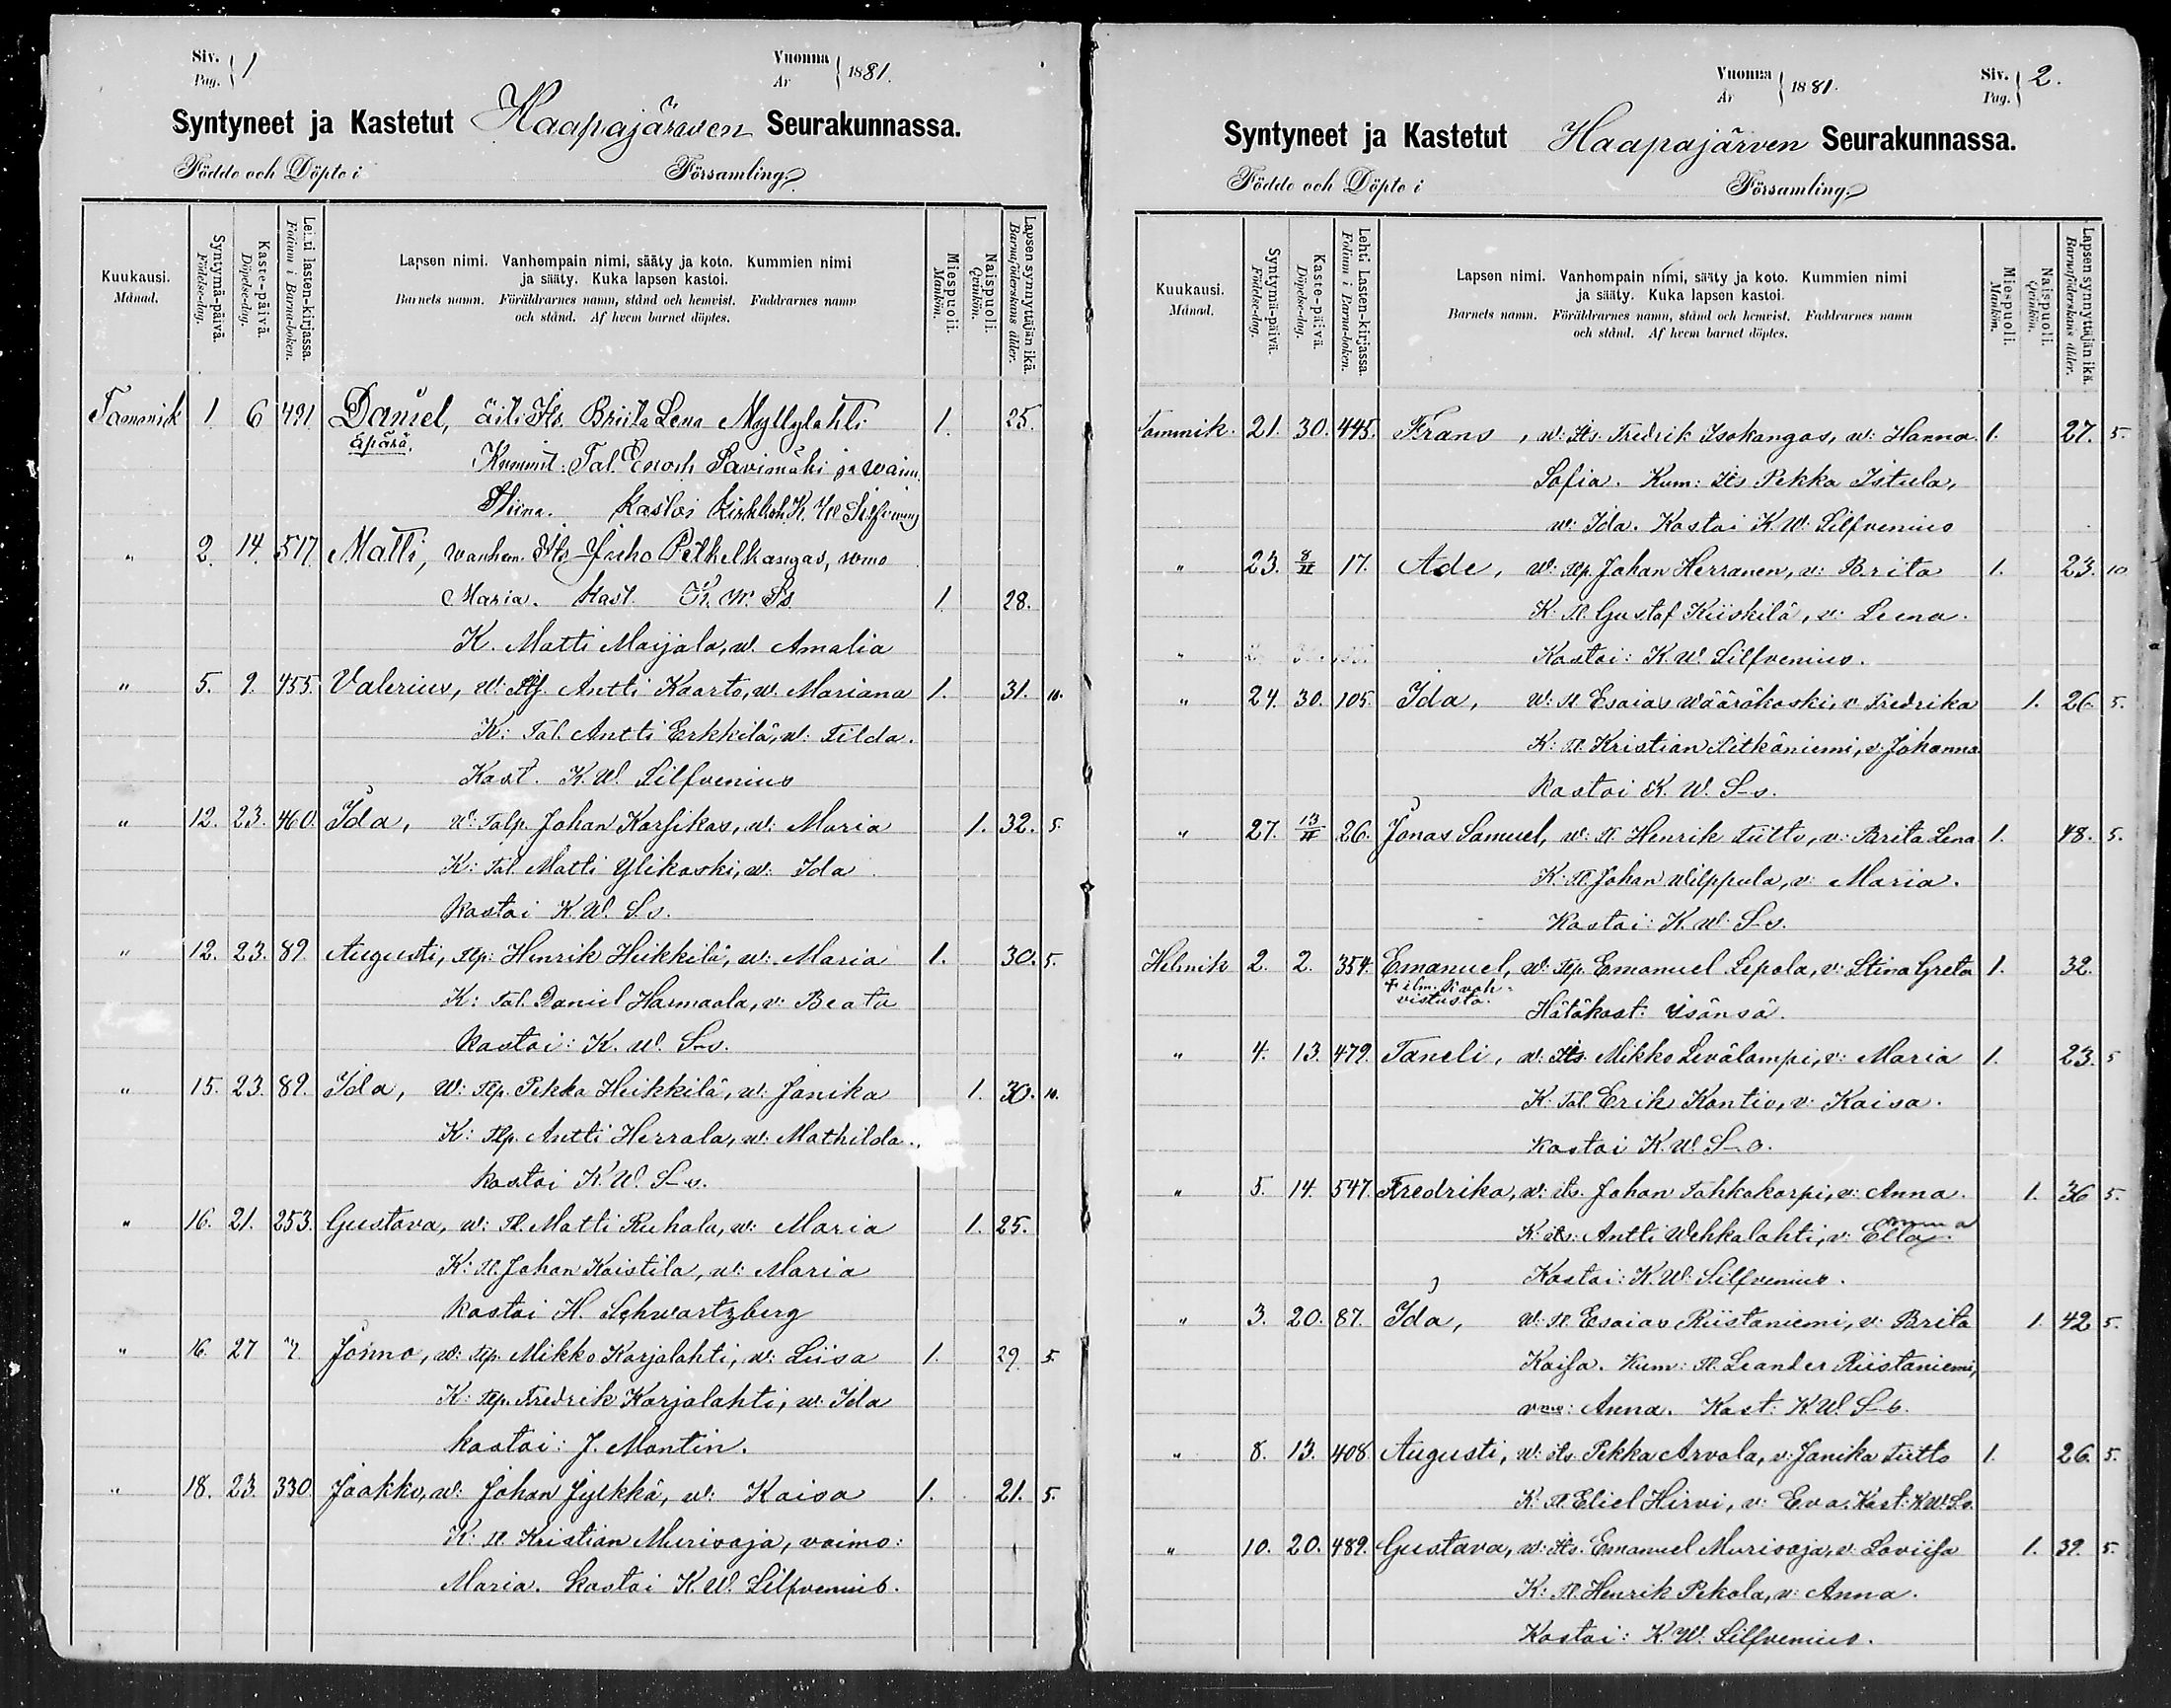 Siv. Pag. 1
Vuonna År 1881.
Syntyneet ja Kastetut Haapajärven Seurakunnassa.
Födde och Döpte i Församling.
Kuukausi. Månad.
Syntymä-päivä. Födelse-dag.
Kaste-päivä. Döpelse-dag.
Lehti lasten-kirjassa. Folium i Barna-boken.
Lapsen nimi. Vanhempain nimi, sääty ja koto. Kummien nimi
ja sääty. Kuka lapsen kastoi.
Barnets namn. Föräldrarnes namn, stånd och hemvist. Faddrarnes namn
och stånd. Af hvem barnet döptes.
Miespuoli. Mankön.
Naispuoli. Qvinkön.
Lapsen synnyttäjän ikä. Barnaföderskans ålder.
Tammik 1. 6 491 Daniel, äiti Its. Briita Lena Myllylahti 1. 25.
äpärä.
Kummit: Tal. Enoch Savimäki ja waim.
Stiina. Kastoi Kirkkoh. K. W. Silfvenius
" 2. 14. 517. Matti, wanhem. Its Juho Pethelkangas, wmo
Maria. Kast. K. W. Ss 1. 28.
K. Matti Maijala, w. Amalia
" 5. 9. 455. Valerius, W: Antti Kaarto, w. Mariana 1. 31. 10.
K: Tal. Antti Erkkilä, w: Tilda.
Kast. K. W. Silfvenius
" 12. 23. 460. Ida, W: Talp. Johan Karsikas, w: Maria 1. 32. 5.
K: Tal. Matti Ylikoski, w: Ida
Kastoi K. W. S-s.
" 12. 23. 89. Augusti, Tlp: Henrik Heikkilä, w: Maria 1. 30. 5.
K: Tal. Daniel Harmaala, v: Beata
Kastoi: K. W. S-s.
" 15. 23. 89. Ida, W: Tlp. Pekka Heikkilä, w: Janika 1. 30. 10.
K: Tlp. Antti Herrala, w: Mathilda.
Kastoi K. W. S-s.
" 16. 21. 253. Gustava, w: Tl. Matti Ruhala, w: Maria 1. 25.
K: Tl. Johan Kaistila, w: Maria
Kastoi H. Schwartzberg
" 16. 27 Jonno, w: Tlp. Mikko Karjalahti, w: Liisa 1. 29. 5.
K: Tlp. Fredrik Karjalahti, w: Ida
Kastoi: J. Montin.
" 18. 23. 330. Jaakko, w: Johan Jylkkä, w: Kaisa 1. 21. 5.
K: Tl. Kristian Murisoja, vaimo:
Maria. Kastoi K. W. Silfvenius.
Vuonna År 1881.
Siv. Pag. 2.
Syntyneet ja Kastetut Haapajärven Seurakunnassa.
Födde och Döpte i Församling.
Kuukausi. Månad.
Syntymä-päivä. Födelse-dag.
Kaste-päivä. Döpelse-dag.
Lehti Lasten-kirjassa. Folium i Barna-boken.
Lapsen nimi. Vanhempain nimi, sääty ja koto. Kummien nimi
ja sääty. Kuka lapsen kastoi.
Barnets namn. Föräldrarnes namn, stånd och hemvist. Faddrarnes namn
och stånd. Af hvem barnet döptes.
Miespuoli. Mankön.
Naispuoli. Qvinkön.
Lapsen synnyttäjän ikä. Barnaföderskans ålder.
Tammik. 21. 30. 445. Frans, w: Its. Fredrik Isokangas, w: Hanna 1. 27. 5.
Sofia. Kum: Its Pekka Istula,
w: Ida. Kastoi K. W. Silfvenius
" 23. 8/II 17. Ade, W: Tlp. Johan Herranen, v: Brita 1. 23. 10
K: Tl. Gustaf Kiiskilä, v: Leena.
" Kastoi: K. W. Silfvenius.
" 24. 30. 105. Ida, W: Tl Esaias Wääräkoski, v. Fredrika 1. 26. 5.
K: Tl. Kristian Pitkäniemi, v: Johanna
Kastoi K. W. S-s.
" 27. 13/II 26. Jonas Samuel, w: Tl Henrik Tiitto, v: Brita Lena 1. 48. 5.
K: Tl. Johan Wilppula, v: Maria.
Kastoi: K. W. S-s.
Helmik 2. 2. 354. Emanuel, W: Tlp. Emanuel Lepola, v: Stina Greta 1. 32.
† ilm. wah-
vistusta. Hätäkast. isänsä.
" 4. 13. 479. Taneli, w: Its. Mikko Levälampi, v: Maria 1. 23. 5
K: Tal. Erik Kontio, v: Kaisa.
Kastoi K. W. S-s.
" 5. 14. 547. Fredrika, w: its. Johan Tahkokorpi, v: Anna. 1. 36 5.
K: its: Antti Wehkalahti, v: Ella.
Kastoi: K. W. Silfvenius.
" 3. 20. 87. Ida, W: Tl. Esaias Riistaniemi, v: Brita 1. 42 5.
Kaisa. Kum: Tl. Leander Riistaniemi,
vmo: Anna. Kast: K. W. S-s.
" 8. 13. 408 Augusti, W: its. Pekka Arvola, v: Janika Tiitto 1. 26. 5.
K: Tl Eliel Hirvi, v: Eva. Kast: K.W. S-s.
" 10. 20. 489. Gustava, w: Its. Emanuel Murisoja, v: Loviisa 1. 39. 5.
K: Tl. Henrik Pekola, v: Anna.
Kastoi: K. W. Silfvenius.